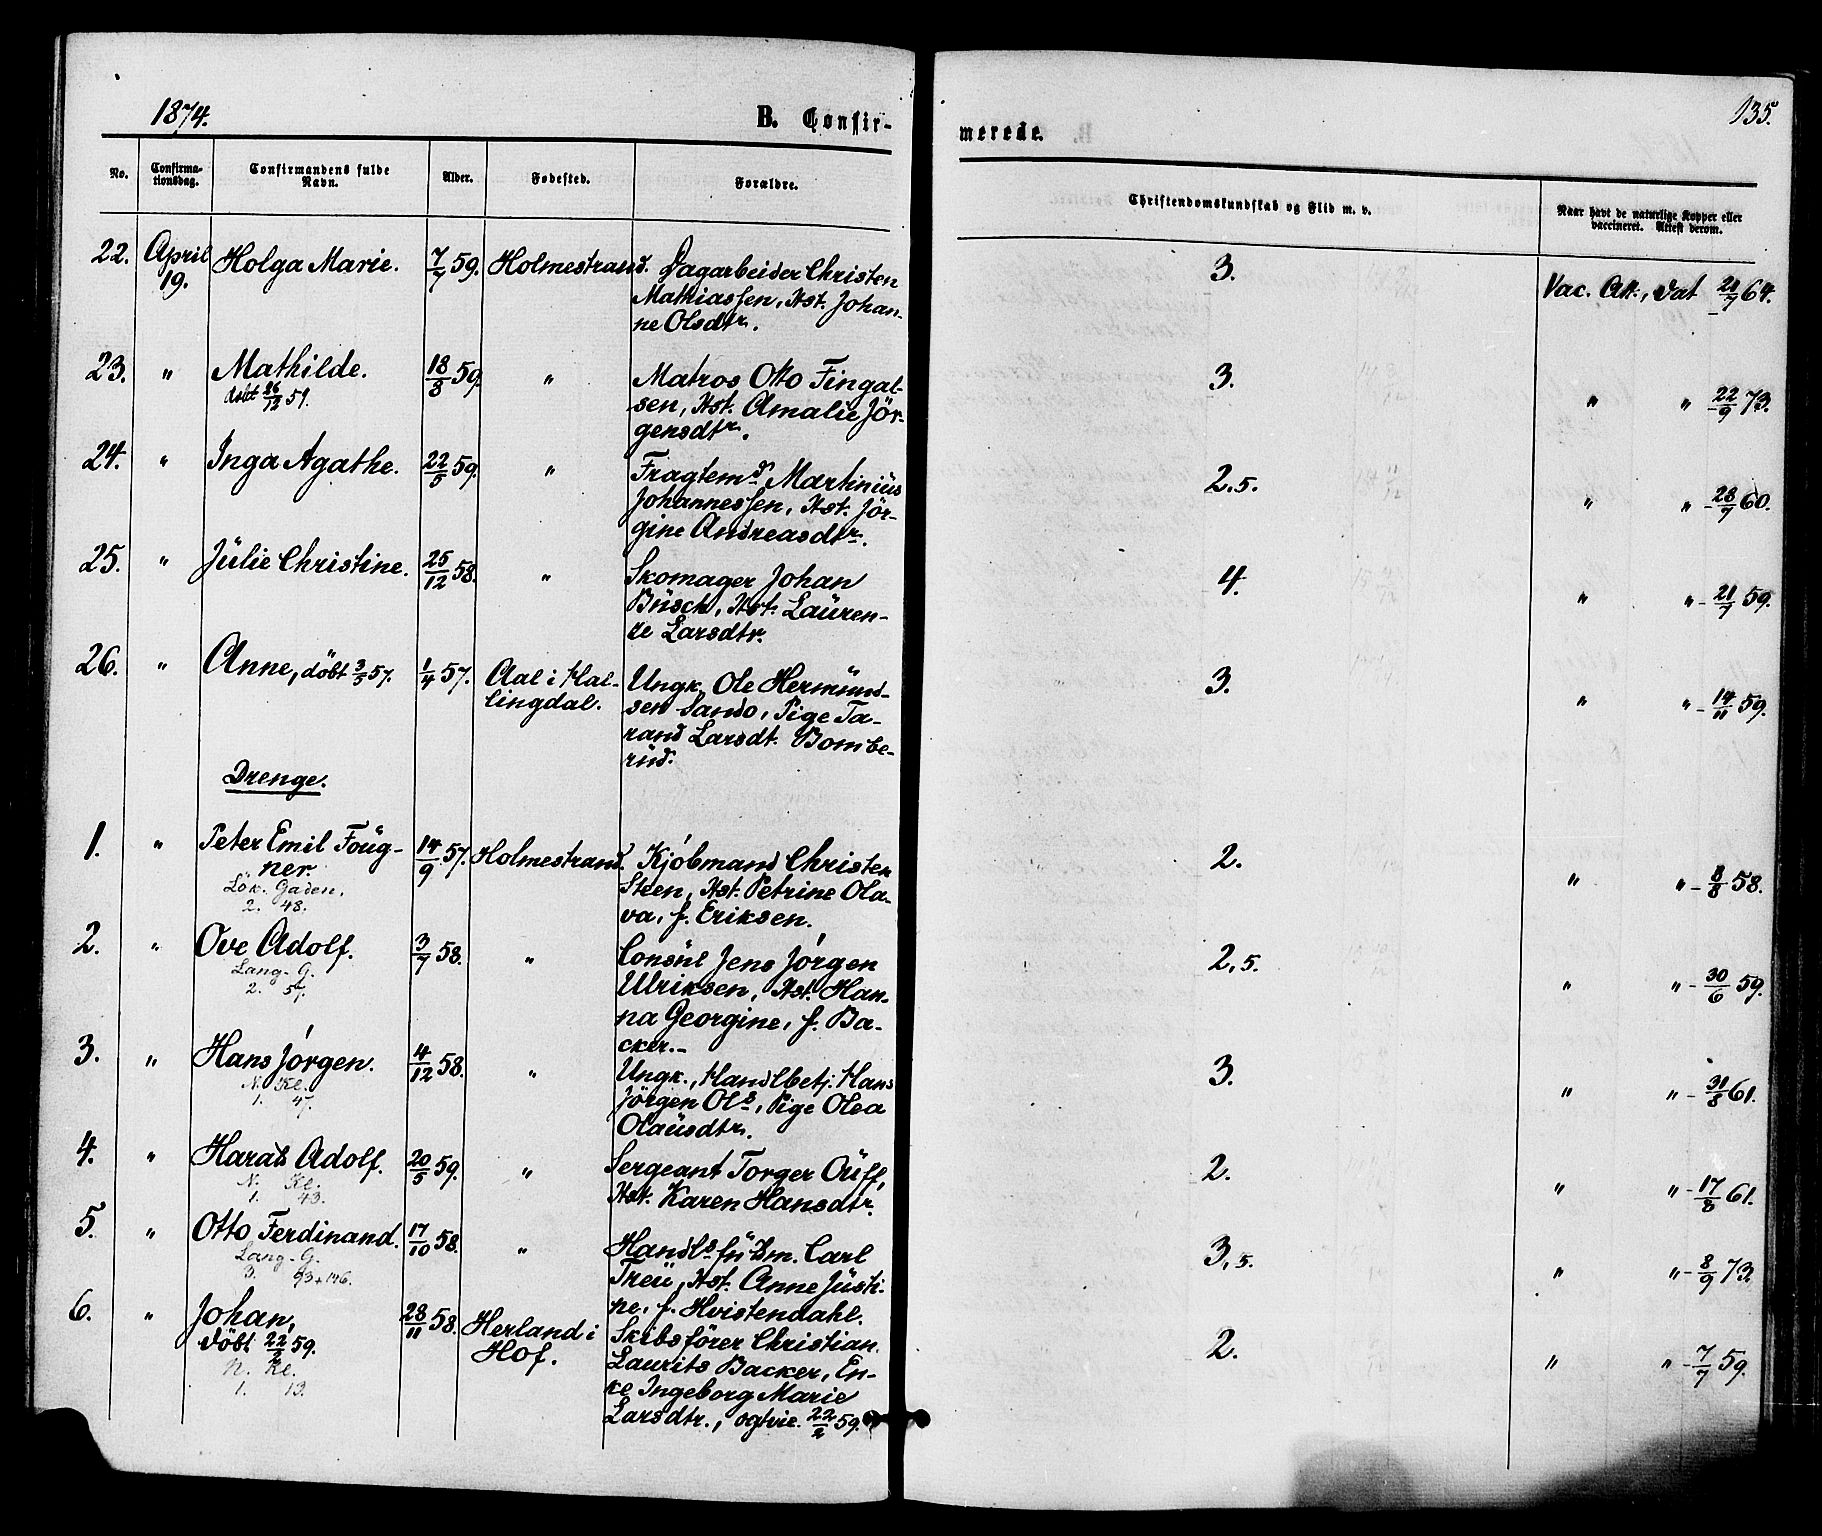 1874.
B. Confir-
merede.
135.
No.
Confirma-
tionsdag.
Confirmandens fulde
Navn.
Alder.
Fødested.
Forældre.
Christendomskundskab og Flid m. v.
Naar havt de naturlige Kopper eller
vaccineret. Attest derom.
22. April 19. Holga Marie. 7/7 59. Holmestrand. Dagarbeider Christen
Mathiassen, Hst. Johan-
ne Olsdtr.
3. Vac. Att., dat 21/7 64.
23. " Mathilde. 18/8 59. " Matros Otto Fingal-
døbt 26/12 59. sen, Hst. Amalie Jör-
gensdtr.
3. " " 22/9 73.
24. " Inga Agathe. 22/5 59. " Fragtemd. Martinius
Johannessen, Hst. Jör-
gine Andreasdtr.
2.5. " " 28/7 60.
25. " Julie Christine. 25/12 58. " Skomager Johan
Büsch, Hst. Lauren-
ze Larsdtr.
4. " " 21/7 59.
26. " Anne, döbt 3/5 57. 1/4 57. Aal i Hal- Ungk. Ole Hermünd-
lingdal. sen Sando, Pige Ta-
rand Larsdt. Bombe-
rüd.
3. " " 14/11 59.
Drenge.
1. " Peter Emil Foüg- 14/9 57. Holmestrand. Kjöbmand Christen
ner. Steen, Hst. Petrine Ola-
Lök. Gaden. va, f. Eriksen.
2. 48.
2. " " 8/8 58.
2. " Ove Adolf. 3/7 58. " Consül Jens Jörgen
Lang-G. Ulriksen, Hst. Han-
2. 57. na Georgine, f. Ba-
cker.-
2,5. " " 30/6 59.
3. " Hans Jörgen. 4/12 58. " Ungk., Handlbetj. Hans
N. Kl. Jörgen Ols, Pige Olea
1. 47. Olaüsdtr.
3. " " 31/8 61.
4. " Harald Adolf. 20/5 59. " Sergeant Torger Oüff,
N. Kl. Hst. Karen Hansdtr.
1. 43.
2. " " 17/8 61.
5. " Otto Ferdinand. 17/10 58. " Carl
Lang-G. Treü, Hst. Anne Jüsti-
3. ne, f. Hvistendahl.
3,5. " " 8/9 73.
6. " Johan, 28/11 58. Herland i Skibsförer Christian
döbt 22/2 59. Hof. Laurits Backer, En-
N. Kl. ke Ingeborg Marie
1. 13. Larsdtr., ogtvie. 22/2 59.
2. " " 7/7 59.